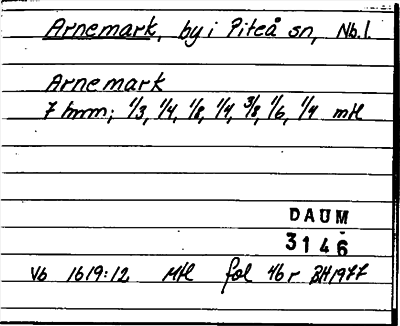 Arnemark, by i Piteå sn, Nb.l.
Arnemark
7 hmn; 1/3, 1/4, 1/8, 1/4, 3/8, 1/6, 1/4 mtl
DAUM
3146
Vb 1619:12 Mtl fol 46r BH1977